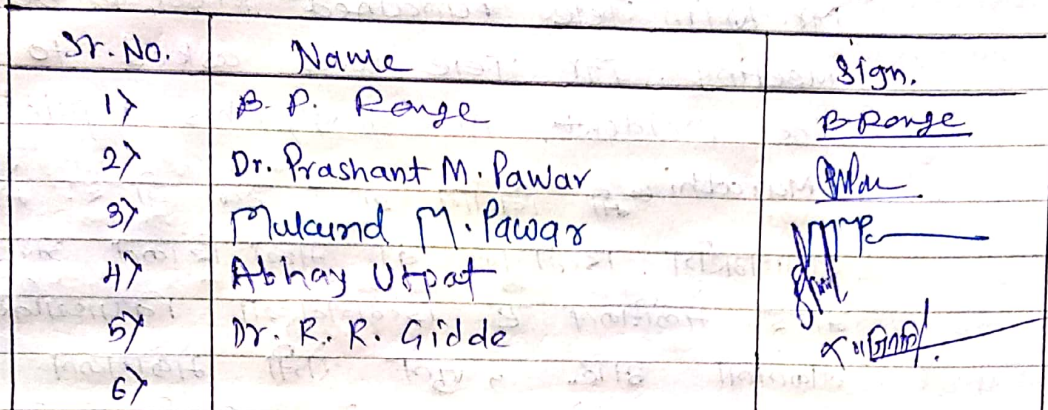 Sr. No. Name Sign.
1> B. P. Ronge B Ronge
2> Dr. Prashant M. Pawar
3> Mukund M. Pawar
4> Abhay Utpat
5> Dr. R. R. Gidde
6>